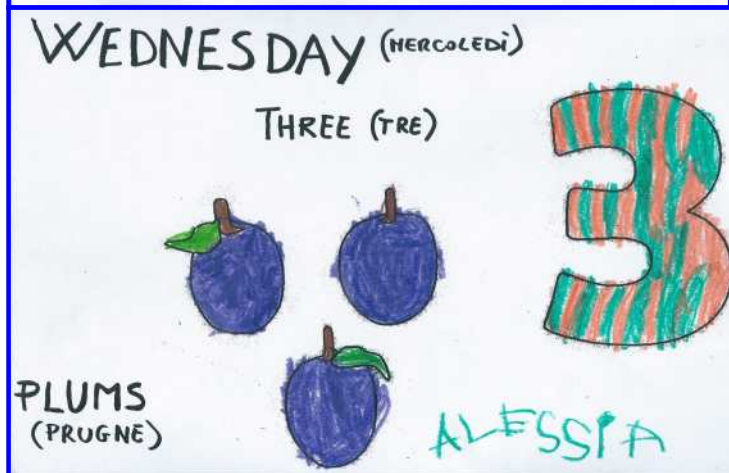 WEDNESDAY (MERCOLEDÌ)
THREE (TRE)
3
PLUMS
(PRUGNE)
ALESSIA